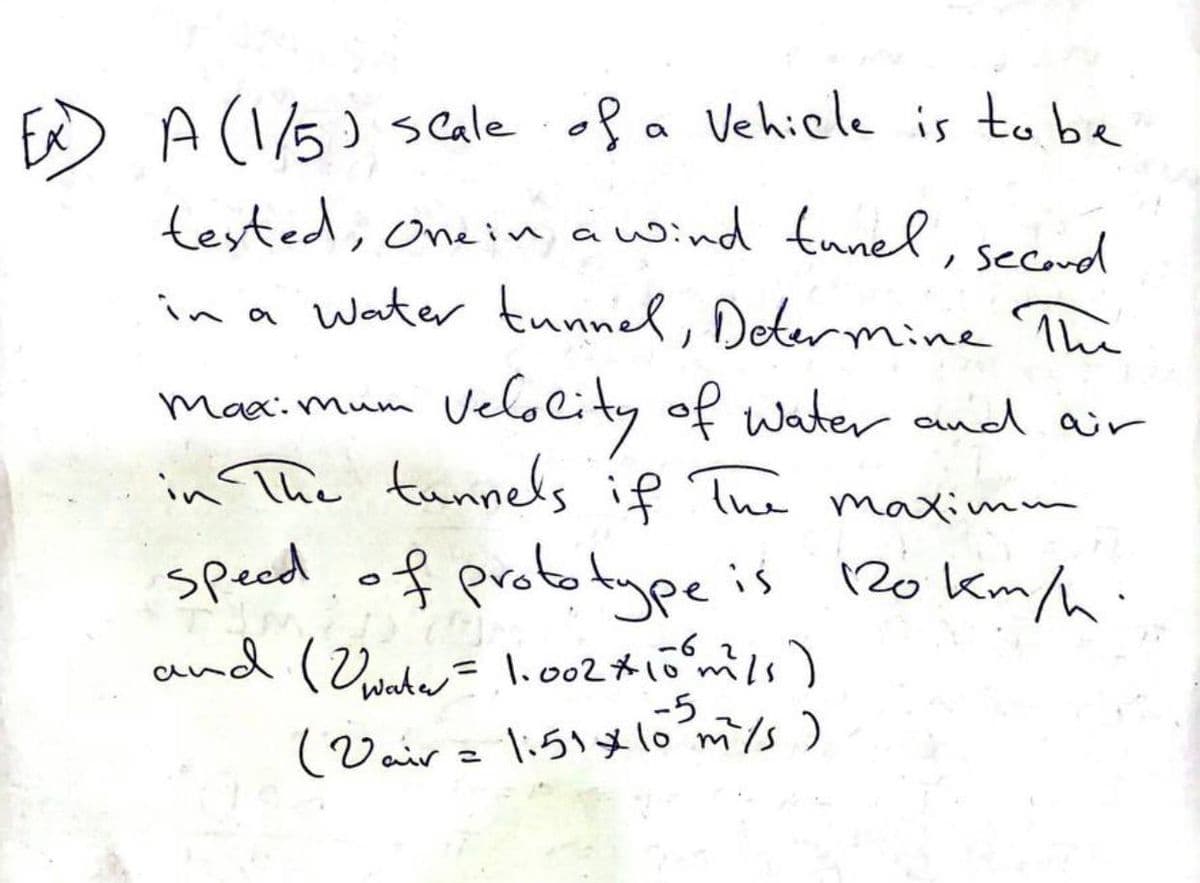 Ex) A (1/5) scale of a Vehicle is to be
tested, one in a wind tunel, second
in a water tunnel, Determine The
maximum Velocity of water and air
in The tunnels if The maximum
speed of prototype is 120 km/h.
and (νwater = 1.002 * 10⁻⁶ m²/s)
(νair = 1.51 * 10⁻⁵ m²/s)